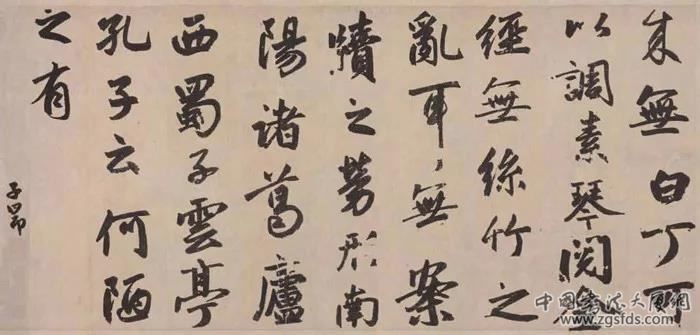 来無白丁可
以調素琴閱金
經無絲竹之
亂耳無案
牘之勞形南
陽諸葛廬
西蜀子雲亭
孔子云何陋
之有
子昂
中國書法大厦網
www.zgsfds.com